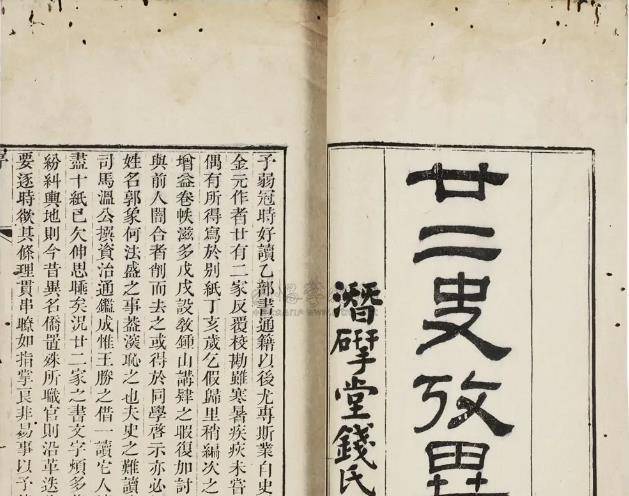 廿二史攷異
潛揅堂錢氏
予弱冠時好讀乙部書通籍以後尤專斯業自史
金元作者廿有二家反覆校勘雖寒暑疾疢未嘗
偶有所得寫於別紙丁亥歲乞假歸里稍編次之
增益卷帙滋多戊戌設敎鍾山講肄之暇復加討
與前人闇合者削而去之或得於同學啓示亦必
姓名郭象何法盛之事葢深恥之也夫史之難讀
司馬溫公撰資治通鑑成惟王勝之借一讀它人
盡十紙已欠伸思睡矣況廿二家之書文字煩多
紛糾輿地則今昔異名僑置殊所職官則沿革迭
要逐時欲其條理貫串瞭如指掌良非易事以予